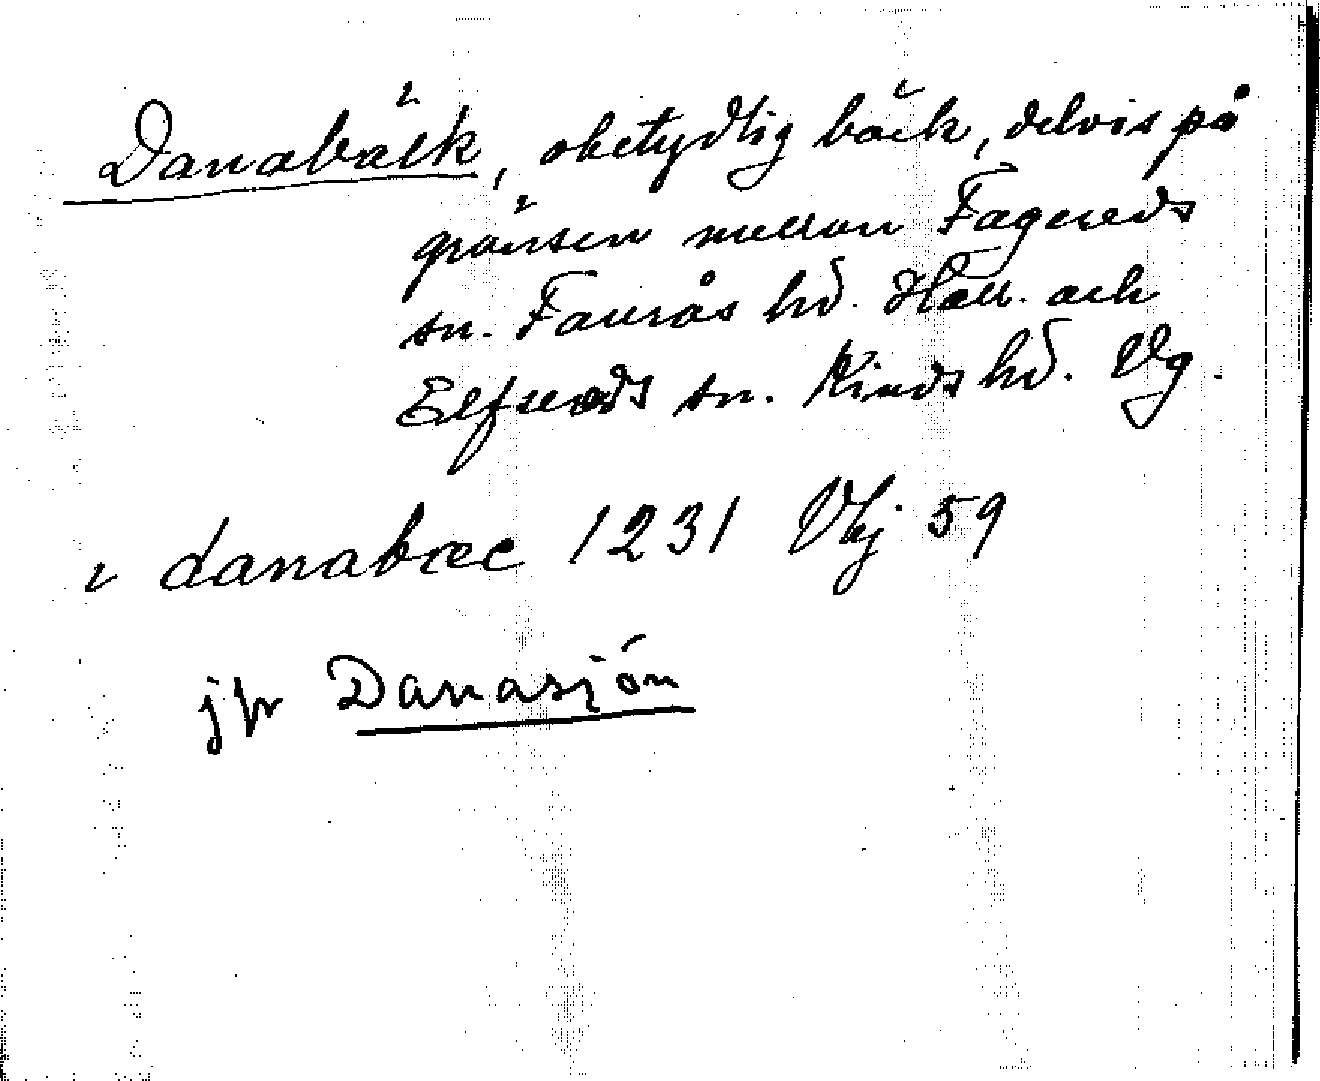 Danabäck, obetydlig bäck, delvis på
gränsen mellan Fagereds
sn. Faurås hd. Hall. och
Elfsereds sn. Kinds hd. Vg.
i danabæc 1231 Vbj 59
jfr Danasjön